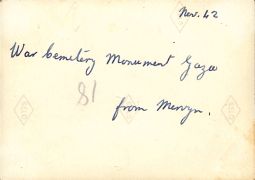 Nov. 42
War Cemetery Monument Gaza
81
from Mervyn.